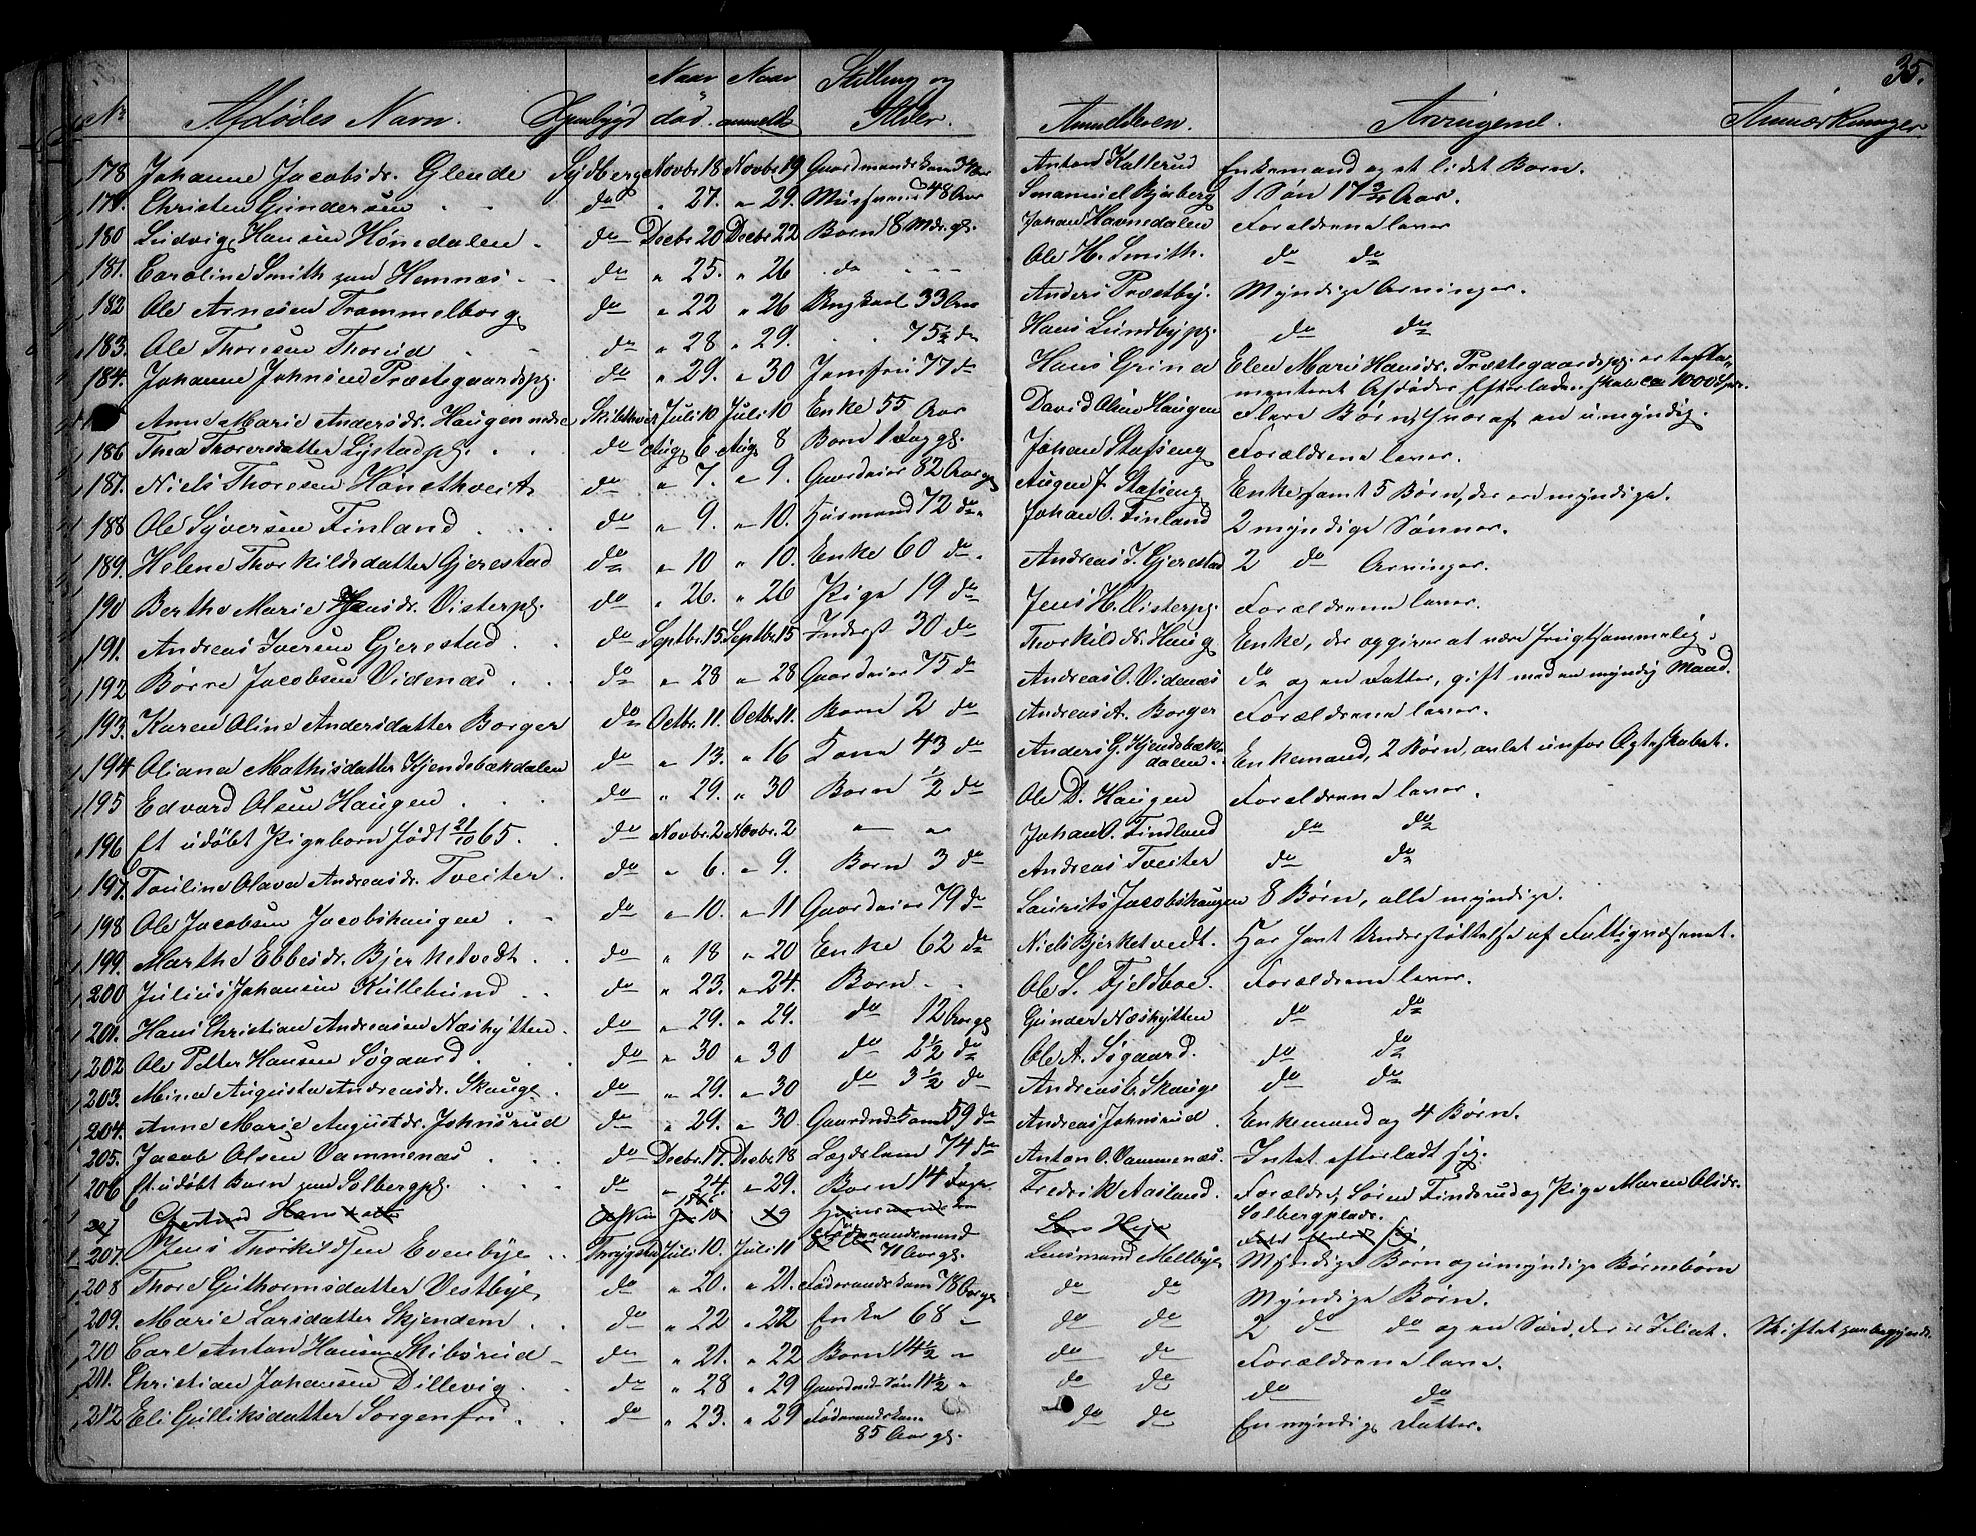 35.
No Afdødes Navn. Hjembygd Naar död. Naar anmeldt Stilling og Alder. Anmelderen. Arvingerne. Anmærkninger
178 Johanne Jacobsdr. Glende Novbr. 18 Novbr. 19 Enkemand og et lidet Barn.
179. Christen Gundersen do " 27. " 29. 48 Aar 1 Søn 17 3/4 Aar.
180 Ludvig Hansen Hønedalen do Decbr. 20 Decbr. 22 Barn 8 Mdr. gl. Johan Havnedalen Forældrene lever
181. Caroline Smith Hemnæs do " 25. " 26 do Ole H. Smith. do do
182 Ole Arnesen Trammelborg do " 22 " 26 Ungkarl 33 Aar Anders Præstby. Myndige Arvinger.
183. Ole Thoresen Thorud do " 28 " 29. 75 1/2 do Hans Lundbypl. do do
184. Johanne Johnsen Præstegaardspl. do " 29. " 30 Jomfru 77 do Hans Grina Elen Marie Hansdr. Præstegaardspl. er testa-
menteret Afdødes Efterladenskab ca 1000 Spd.
Anne Marie Andersdr. Haugen nedre Juli 10 Juli 10 Enke 55 Aar David Olsen Haugen Flere Børn, hvoraf en umyndig.
186 Thea Thorersdatter Lystadpl. do Aug. 6. Aug. 8 Barn 1 Dag gl. Johan Stafseng Forældrene lever.
187. Niels Thoresen Hønsthveit do " 7. " 9. Gaardeier 82 Aar gl Augen J. Stafseng Enke samt 5 Børn, der ere myndige.
188 Ole Syversen Finland do " 9. " 10. Husmand 72 do Johan O. Finland 2 myndige Sønner.
189. Helene Thorkildsdatter Gjerestad do " 10 " 10. Enke 60 do Andreas I. Gjerestad 2 do Arvinger.
190 Berthe Marie Jensdr. Visterpl. do " 26. " 26 Pige 19 do Jens H. Visterpl. Forældrene lever.
191. Andreas Iversen Gjerestad do Septbr. 15 Septbr. 15 Inderst 30 do Thorkild Haug Enke, der opgiver at være frugtsommelig.
192 Børre Jacobsen Videnæs do " 28 " 28 Gaardeier 75 do Andreas O. Videnæs do og en Datter, gift med en myndig Mand.
193. Karen Oline Andersdatter Borger do Octbr. 11. Octbr. 11. Barn 2 do Andreas A. Borger Forældrene lever.
194 Oliana Mathisdatter Kjendsbækdalen do " 13. " 16 Kone 43 do Anders G. Kjendsbæk-
dalen Enkemand, 2 Børn, avlet udenfor Ægteskabet.
195 Edvard Olsen Haugen do " 29. " 30 Barn 1/2 do Ole D. Haugen Forældrene lever.
196 Et udøbt Pigebarn født 21/10 65. do Novbr. 2 Novbr. 2 " " Johan O. Findland do do
197. Pauline Olava Andreasdr. Tveiter do " 6. " 9. Barn 3 do Andreas Tveiter do do
198 Ole Jacobsen Jacobshaugen do " 10. " 11 Gaardeier 79 do Laurits Jacobshaugen 8 Børn, alle myndige.
199. Marthe Ebbesdr. Bjerketvedt do " 18 " 20 Enke 62 do Niels Bjerketvedt. Har havt Understøttelse af Fattigvæsenet.
200 Julius Johansen Kullebund do " 23. " 24. Barn Ole S. Fjeldboe. Forældrene lever.
201. Hans Christian Andreasen Næshytten do " 29. " 29. do 12 Aar gl Gunder Næshytten do do
202 Ole Petter Hansen Søgaard do " 30 " 30 do 2 1/2 do Ole A. Søgaard. do do
203. Mina Augusta Andreasdr. Skauge do " 29. " 30 do 3 1/2 do Andreas E. Skauge do do
204. Anne Marie Augustdr. Johnsrud do " 29. " 30 59 do Andreas Johnsrud Enkemand og 4 Børn.
205. Jacob Olsen Vammenæs do Decbr. 17. Decbr. 18 Lægdslem 74 do Anton O. Vammenæs. Intet efterladt sig.
206 Et udøbt Barn Solbergpl. do " 24. " 29. Barn 14 Dage Fredrik Aasland. Forældre, Søren Findsrud og Pige Maren Olsdr.
Solbergplads.
207. Jens Thorkildsen Evenbye Juli 10. Juli 11 Føderaadsmand
71 Aar gl. Lensmand Mellbye Myndige Børn og umyndige Børnebørn
208 Thore Guthormsdatter Vestbye do " 20. " 21. 78 Aar gl do do Myndige Børn.
209. Marie Larsdatter Skjendem do " 22 " 22 Enke 68 " do do 2 do do og en Søn, der er Idiot.
210 Carl Anton Hansen Skibsrud do " 21. " 22 Barn 14 1/2 " do do Forældrene lever.
211. Christian Johansen Dillevig do " 28 " 29 11 1/2 " do do do do
212 Eli Gulliksdatter Sorgenfri do " 23. " 29
85 Aar gl. do do En myndig Datter.